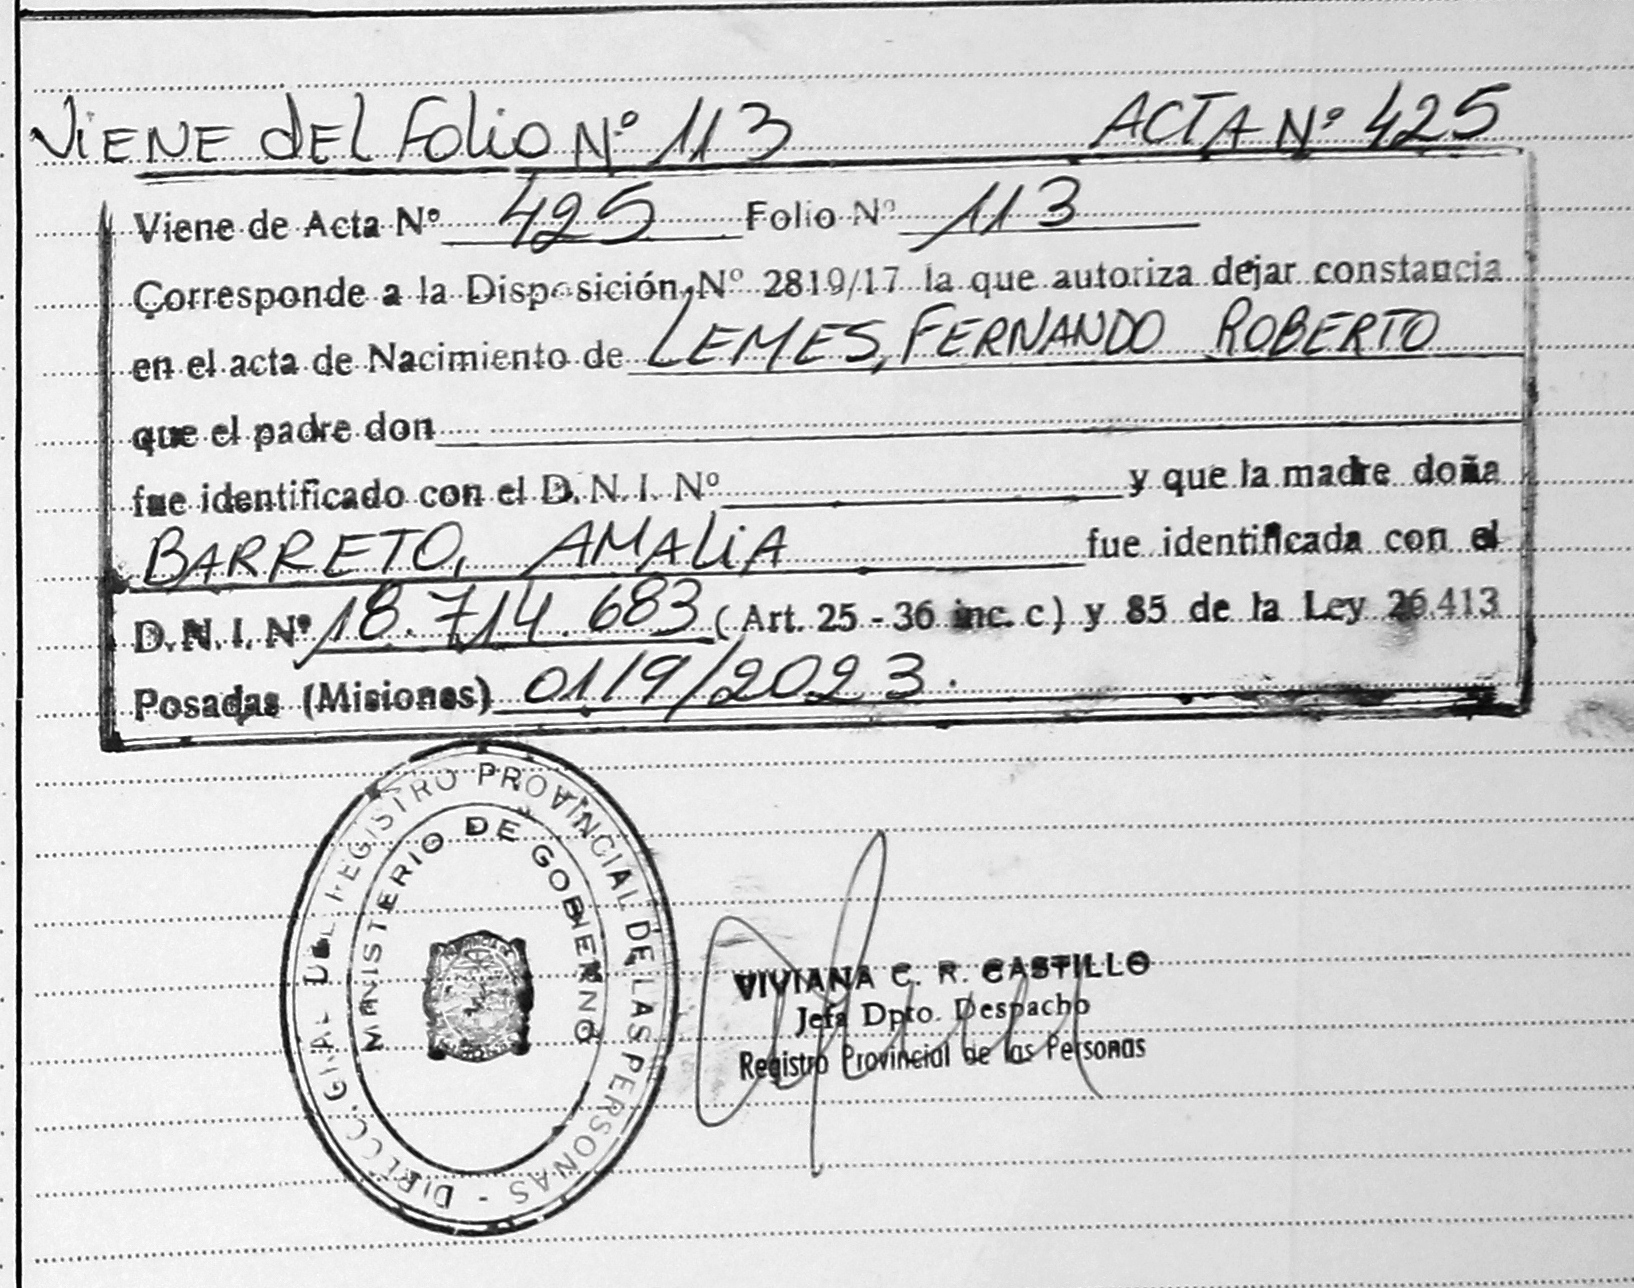 ViENE dEL Folio Nº 113 ACTA Nº 425
Viene de Acta Nº 425 Folio Nº 113
Corresponde a la Disposición Nº 2819/17 la que autoriza dejar constancia
en el acta de Nacimiento de LEMES, FERNANDO ROBERTO
que el padre don
fue identificado con el D.N.I. Nº y que la madre doña
BARRETO, AMALiA fue identificada con el
D.N.I. Nº 18.714.683 (Art. 25 - 36 inc. c) y 85 de la Ley 26.413
Posadas (Misiones) 01/9/2023.
DIRECC. GRAL DEL REGISTRO PROVINCIAL DE LAS PERSONAS -
MINISTERIO DE GOBIERNO
VIVIANA C. R. CASTILLO
Jefa Dpto. Despacho
Registro Provincial de las Personas